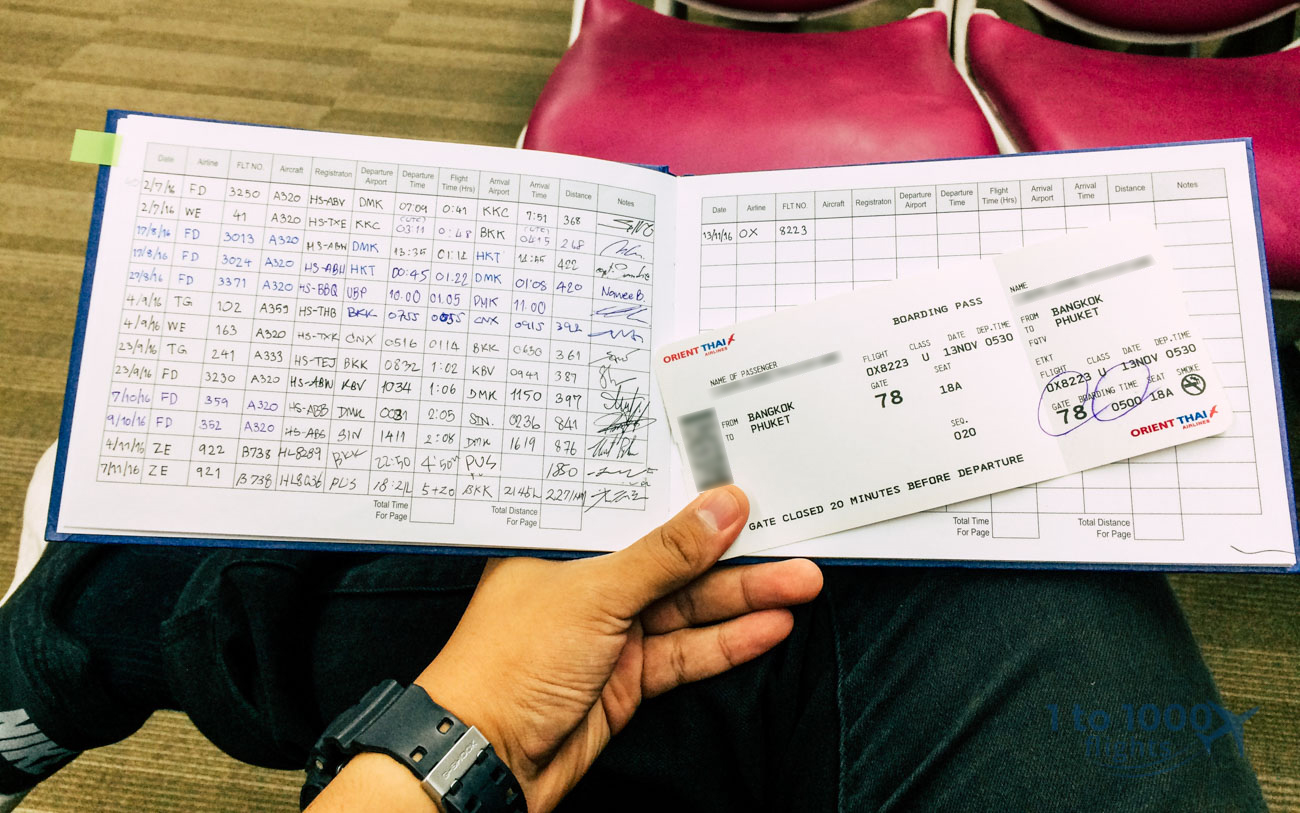 Date Airline FLT NO. Aircraft Registraton Departure Airport Departure Time Flight Time (Hrs) Arrival Airport Arrival Time Distance Notes
2/7/16 FD 3250 A320 HS-ABV DMK 07:09 0:41 KKC 7:51 368
2/7/16 WE 41 A320 HS-TXE KKC 03:11 0:48 BKK 0415 248
17/8/16 FD 3013 A320 HS-ABW DMK 13:35 01:12 HKT 422
17/8/16 FD 3024 A320 HKT 00:45 01.22 DMK 01:08 420
27/8/16 FD 3371 A320 HS-BBQ UBP 10.00 01.05 DMK 11.00 Namee B.
4/9/16 TG 102 A359 HS-THB BKK 0755 CNX 0915 392
4/9/16 WE 163 A320 HS-TXK CNX 0516 0114 BKK 0630 361
23/9/16 TG 241 A333 HS-TEJ BKK 0832 1:02 KBV 0941 387
23/9/16 FD 3230 A320 HS-ABW KBV 1034 1:06 DMK 1150 397
7/10/16 FD 359 A320 HS-ABB DMK 2:05 SIN 0236 841
9/10/16 FD 352 A320 HS-ABG SIN 1411 2:08 DMK 1619 876
4/11/16 ZE 922 B738 HL8289 BKK 22:50 4'50" PUS 1850
7/11/16 ZE 921 B738 PUS 18:21L 5+20 BKK 2145L
Total Time For Page
Total Distance For Page
Date Airline FLT NO. Aircraft Registraton Departure Airport Departure Time Flight Time (Hrs) Arrival Airport Arrival Time Distance Notes
13/11/16 OX 8223
Total Time For Page
Total Distance For Page
ORIENT THAI
AIRLINES
BOARDING PASS
NAME OF PASSENGER
FROM BANGKOK
TO PHUKET
FLIGHT CLASS DATE DEP.TIME
OX8223 U 13NOV 0530
GATE SEAT
78 18A
SEQ.
020
GATE CLOSED 20 MINUTES BEFORE DEPARTURE
NAME
FROM BANGKOK
TO PHUKET
FQTV
ETKT
FLIGHT CLASS DATE DEP.TIME
OX8223 U 13NOV 0530
GATE BOARDING TIME SEAT SMOKE
78 0500 18A
ORIENT THAI
AIRLINES
G-SHOCK
1 to 1000
flights